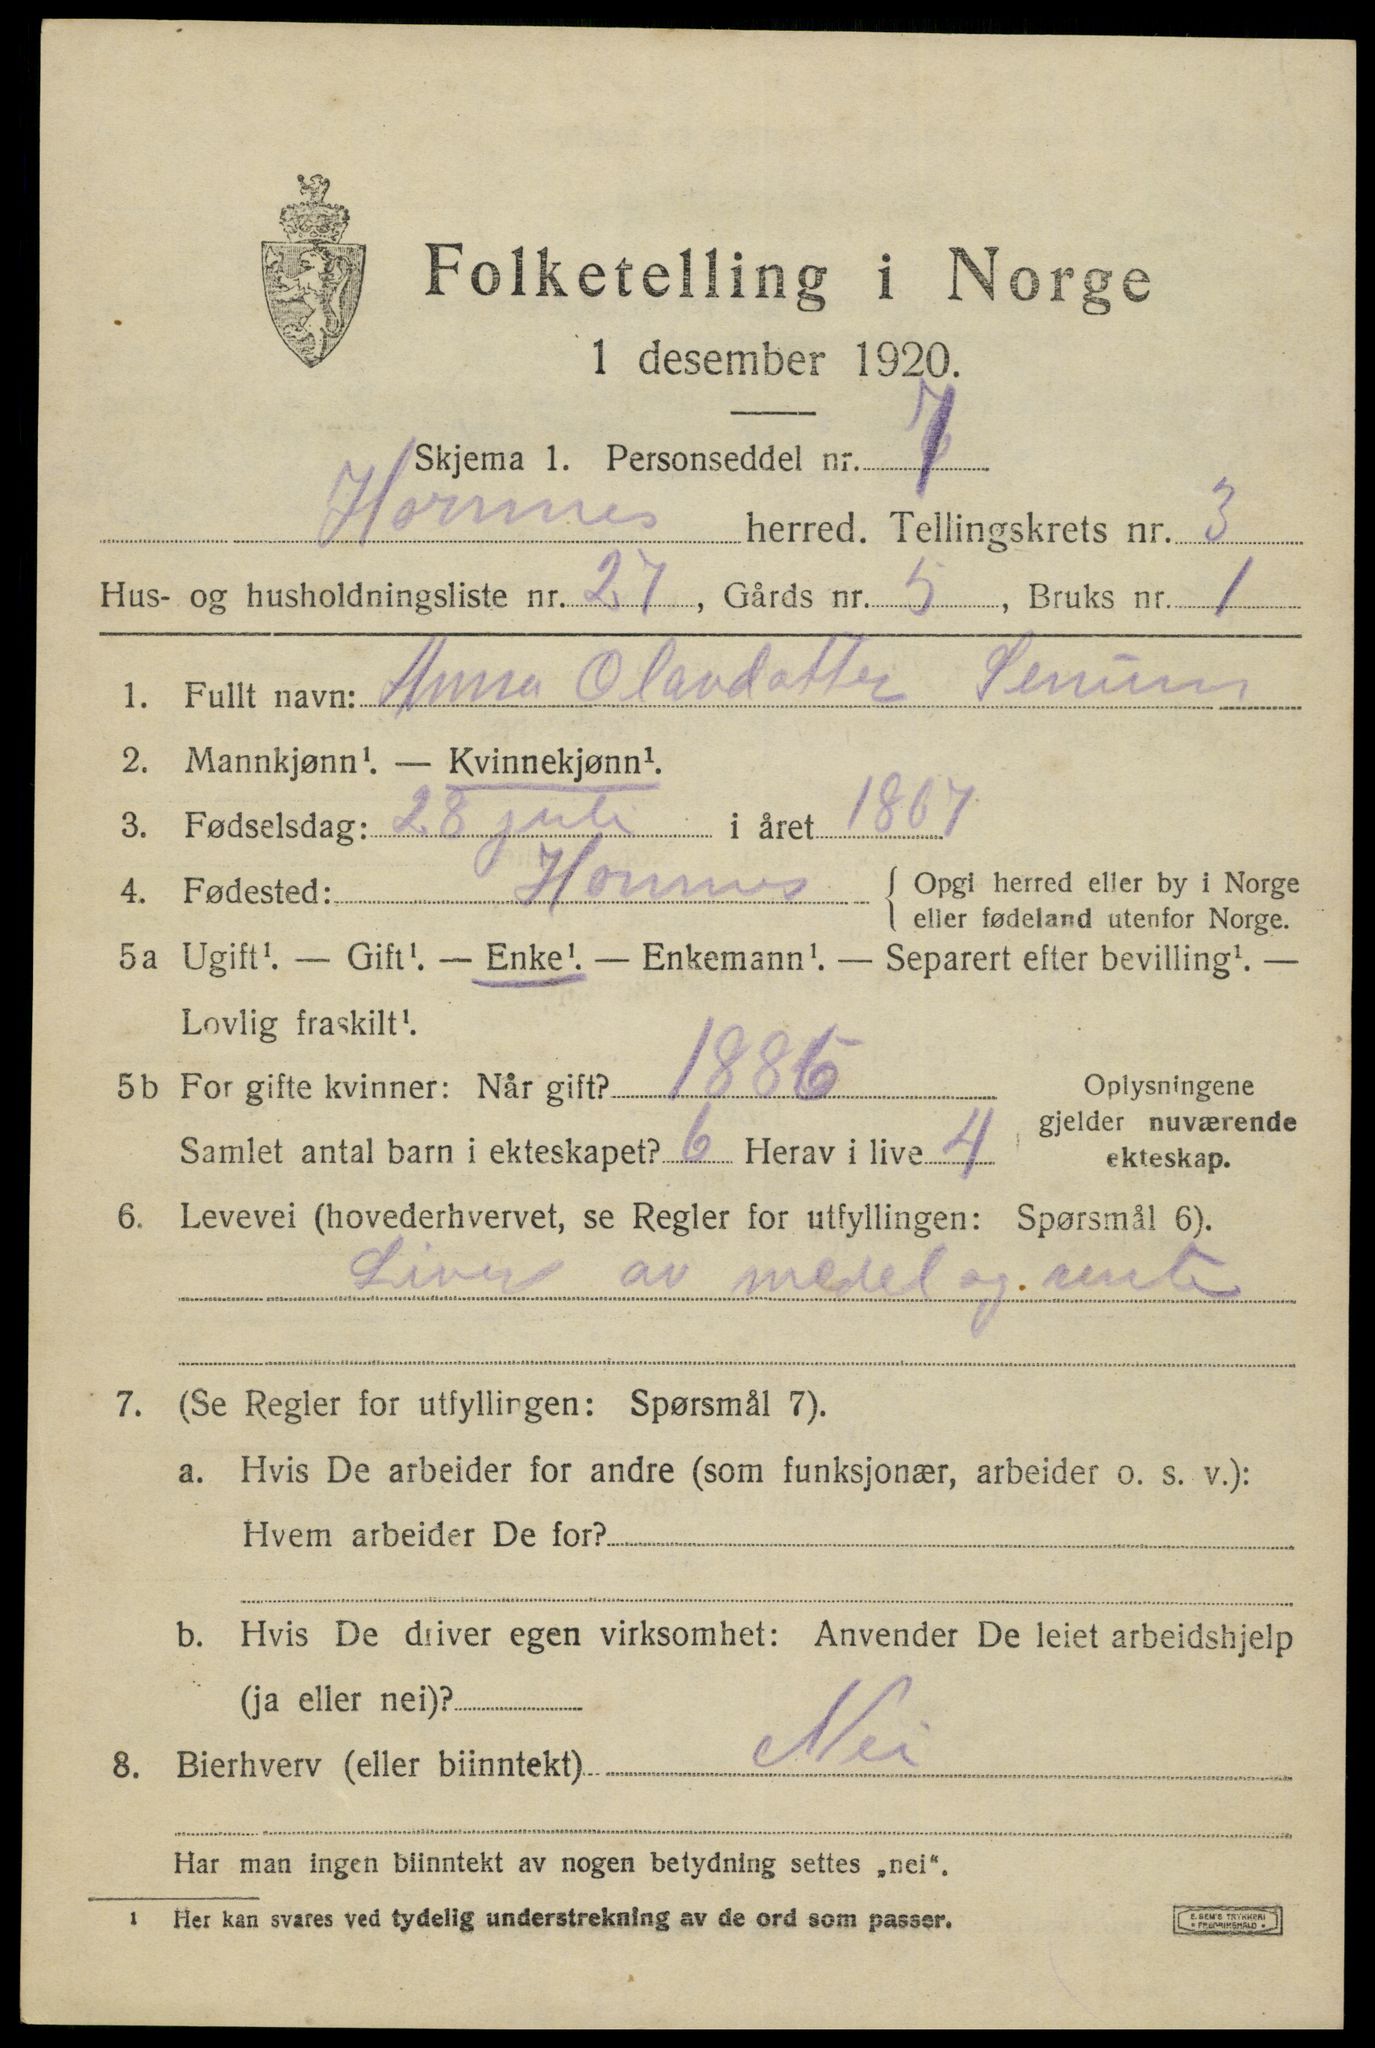 Folketelling i Norge
1 desember 1920.
Skjema 1. Personseddel nr. 7
Hornnes herred. Tellingskrets nr. 3
Hus- og husholdningsliste nr. 27, Gårds nr. 5, Bruks nr. 1
1. Fullt navn: Anna Olavdatter Senum
2. Mannkjønn¹. — Kvinnekjønn¹.
3. Fødselsdag: 28 juli i året 1867
4. Fødested: Hornnes { Opgi herred eller by i Norge
eller fødeland utenfor Norge.
5a Ugift¹. — Gift¹. — Enke¹. — Enkemann¹. — Separert efter bevilling¹. —
Lovlig fraskilt¹.
5b For gifte kvinner: Når gift? 1886
Samlet antal barn i ekteskapet? 6 Herav i live 4
Oplysningene
gjelder nuværende
ekteskap.
6. Levevei (hovederhvervet, se Regler for utfyllingen: Spørsmål 6).
Liver av medel og rente
7. (Se Regler for utfyllingen: Spørsmål 7).
a. Hvis De arbeider for andre (som funksjonær, arbeider o. s. v.):
Hvem arbeider De for?
b. Hvis De driver egen virksomhet: Anvender De leiet arbeidshjelp
(ja eller nei)?
8. Bierhverv (eller biinntekt) Nei
Har man ingen biinntekt av nogen betydning settes „nei“.
1 Her kan svares ved tydelig understrekning av de ord som passer.
E. SEM'S TRYKKERI
FREDRIKSHALD